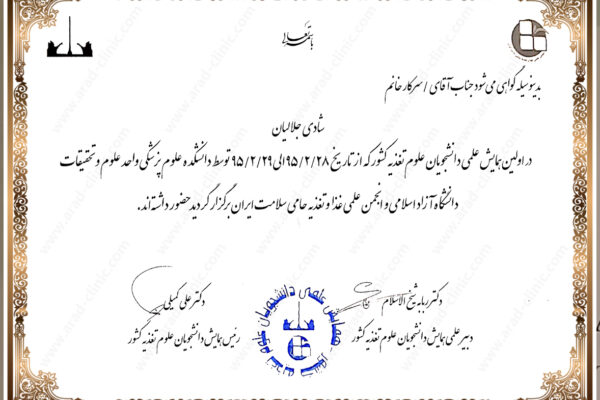 باسمه تعالی
بدینوسیله گواهی می شود جناب آقای / سرکار خانم
شادی جلالیان
در اولین همایش علمی دانشجویان علوم تغذیه کشور که از تاریخ ۹۵/۲/۲۸ الی ۹۵/۲/۲۹ توسط دانشکده علوم پزشکی واحد علوم و تحقیقات
دانشگاه آزاد اسلامی و انجمن علمی غذا و تغذیه حامی سلامت ایران برگزار گردید حضور داشته اند.
دکتر ربابه شیخ الاسلام
دبیر علمی همایش دانشجویان علوم تغذیه کشور
دکتر علی کمیلی
رئیس همایش دانشجویان علوم تغذیه کشور
همایش علمی دانشجویان علوم تغذیه کشور
www.arad-clinic.com